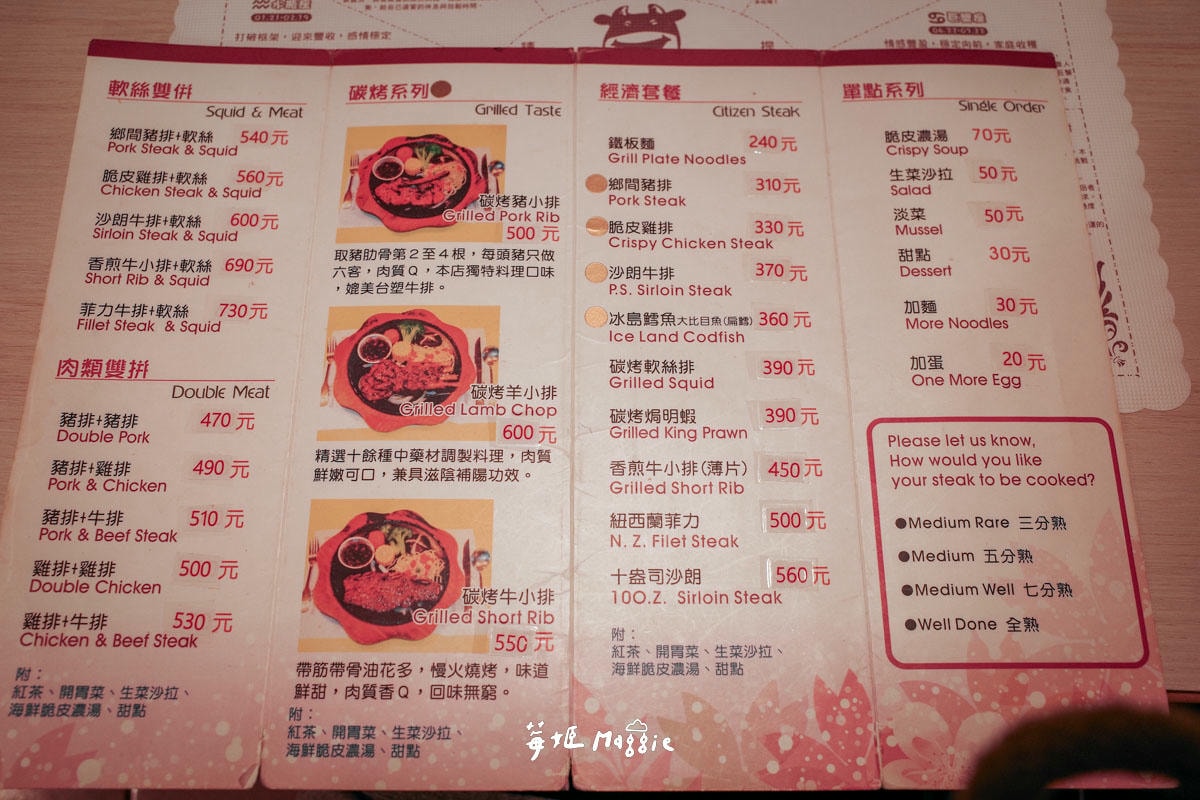 水瓶座
01.21-02.19
打破框架，迎來豐收，感情穩定
巨蟹座
情感豐盈，穩定向前，家庭收穫
軟絲雙併
Squid & Meat
鄉間豬排+軟絲 540元
Pork Steak & Squid
脆皮雞排+軟絲 560元
Chicken Steak & Squid
沙朗牛排+軟絲 600元
Sirloin Steak & Squid
香煎牛小排+軟絲 690元
Short Rib & Squid
菲力牛排+軟絲 730元
Fillet Steak & Squid
肉類雙拼
Double Meat
豬排+豬排 470元
Double Pork
豬排+雞排 490元
Pork & Chicken
豬排+牛排 510元
Pork & Beef Steak
雞排+雞排 500元
Double Chicken
雞排+牛排 530元
Chicken & Beef Steak
附：
紅茶、開胃菜、生菜沙拉、
海鮮脆皮濃湯、甜點
碳烤系列
Grilled Taste
碳烤豬小排
Grilled Pork Rib
500元
取豬肋骨第2至4根，每頭豬只做
六客，肉質Q，本店獨特料理口味
，媲美台塑牛排。
碳烤羊小排
Grilled Lamb Chop
600元
精選十餘種中藥材調製料理，肉質
鮮嫩可口，兼具滋陰補陽功效。
碳烤牛小排
Grilled Short Rib
550元
帶筋帶骨油花多，慢火燒烤，味道
鮮甜，肉質香Q，回味無窮。
附：
紅茶、開胃菜、生菜沙拉、
海鮮脆皮濃湯、甜點
經濟套餐
Citizen Steak
鐵板麵 240元
Grill Plate Noodles
鄉間豬排 310元
Pork Steak
脆皮雞排 330元
Crispy Chicken Steak
沙朗牛排 370元
P.S. Sirloin Steak
冰島鱈魚大比目魚(扁鱈) 360元
Ice Land Codfish
碳烤軟絲排 390元
Grilled Squid
碳烤焗明蝦 390元
Grilled King Prawn
香煎牛小排(薄片) 450元
Grilled Short Rib
紐西蘭菲力 500元
N. Z. Filet Steak
十盎司沙朗 560元
10O.Z. Sirloin Steak
附：
紅茶、開胃菜、生菜沙拉、
海鮮脆皮濃湯、甜點
單點系列
Single Order
脆皮濃湯 70元
Crispy Soup
生菜沙拉 50元
Salad
淡菜 50元
Mussel
甜點 30元
Dessert
加麵 30元
More Noodles
加蛋 20元
One More Egg
Please let us know,
How would you like
your steak to be cooked?
●Medium Rare 三分熟
●Medium 五分熟
●Medium Well 七分熟
●Well Done 全熟
莓姬 Maggie